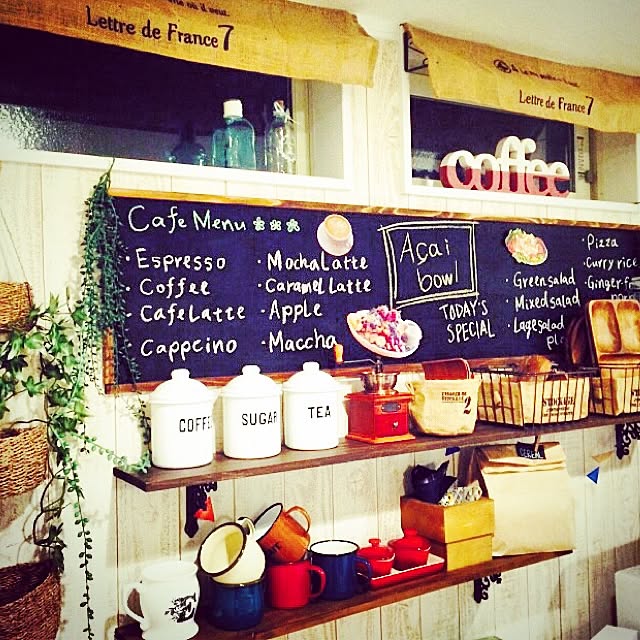 Lettre de France 7
Lettre de France 7
coffee
Cafe Menu
· Espresso
· Coffee
· Cafe Latte
· Cappcino
· Mocha Latte
· Caramel Latte
· Apple
· Maccha
Açai
bowl
TODAY'S
SPECIAL
· Green salad
· Mixed salad
· Lage salad
· Pizza
· Curry rice
· Ginger
COFFEE
SUGAR
TEA
2
CEREAL